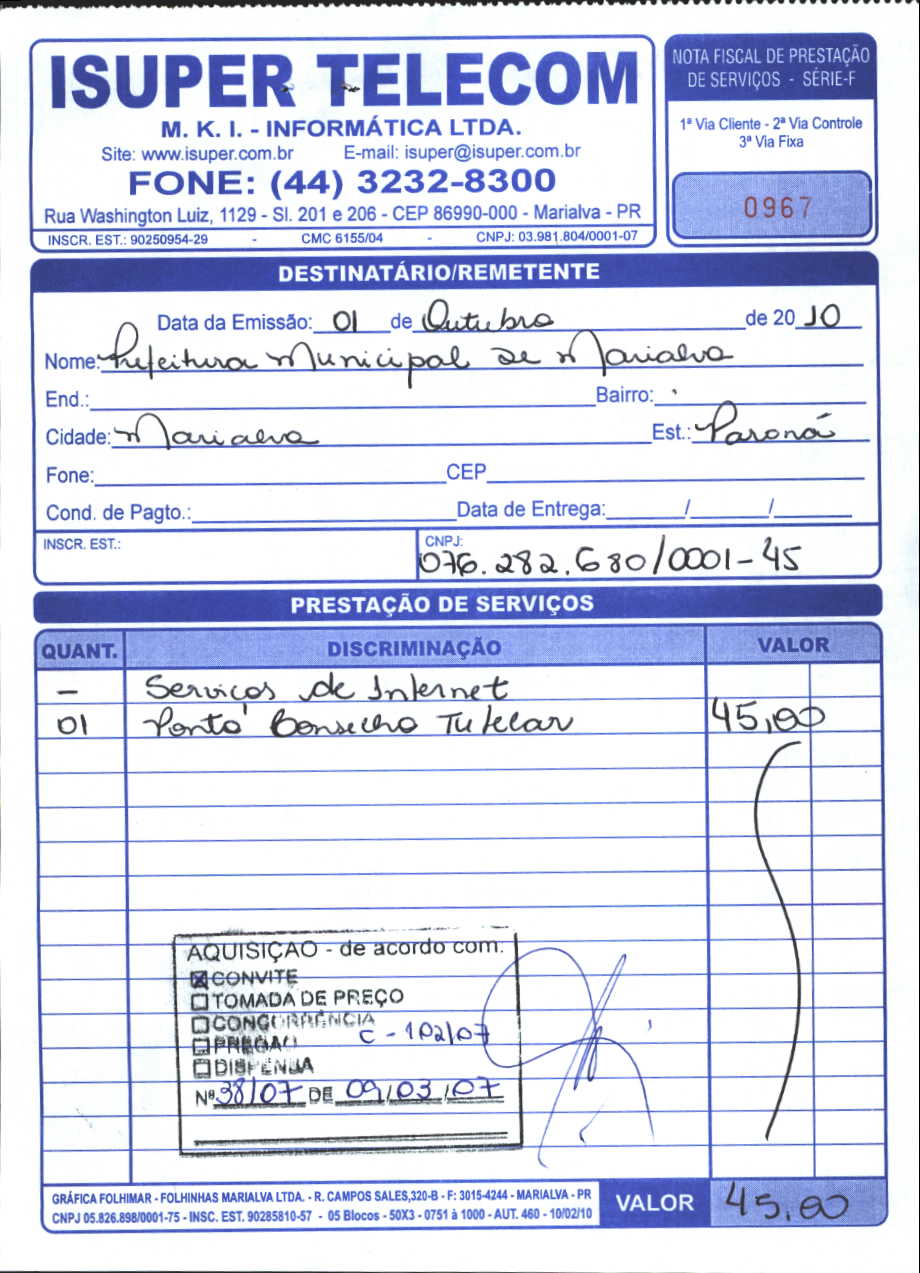 ISUPER TELECOM
M. K. I. - INFORMÁTICA LTDA.
Site: www.isuper.com.br E-mail: isuper@isuper.com.br
FONE: (44) 3232-8300
Rua Washington Luiz, 1129 - Sl. 201 e 206 - CEP 86990-000 - Marialva - PR
INSCR. EST.: 90250954-29 - CMC 6155/04 - CNPJ: 03.981.804/0001-07
NOTA FISCAL DE PRESTAÇÃO
DE SERVIÇOS - SÉRIE-F
1ª Via Cliente - 2ª Via Controle
3ª Via Fixa
0967
DESTINATÁRIO/REMETENTE
Data da Emissão: 01 de Outubro de 2010
Nome: Prefeitura Municipal de Marialva
End.: Bairro:
Cidade: Marialva Est.: Paraná
Fone: CEP
Cond. de Pagto.: Data de Entrega: / /
INSCR. EST.: CNPJ: 076.282.680/0001-45
PRESTAÇÃO DE SERVIÇOS
QUANT. DISCRIMINAÇÃO VALOR
- Serviços de Internet
01 Ponto Conselho Tutelar 45,00
AQUISIÇÃO - de acordo com:
CONVITE
TOMADA DE PREÇO
CONCORRÊNCIA
PREGÃO C - 102/07
DISPENSA
Nº 38/07 DE 09/03/07
GRÁFICA FOLHIMAR - FOLHINHAS MARIALVA LTDA. - R. CAMPOS SALES,320-B - F: 3015-4244 - MARIALVA - PR
CNPJ 05.826.898/0001-75 - INSC. EST. 90285810-57 - 05 Blocos - 50X3 - 0751 à 1000 - AUT. 460 - 10/02/10
VALOR 45,00